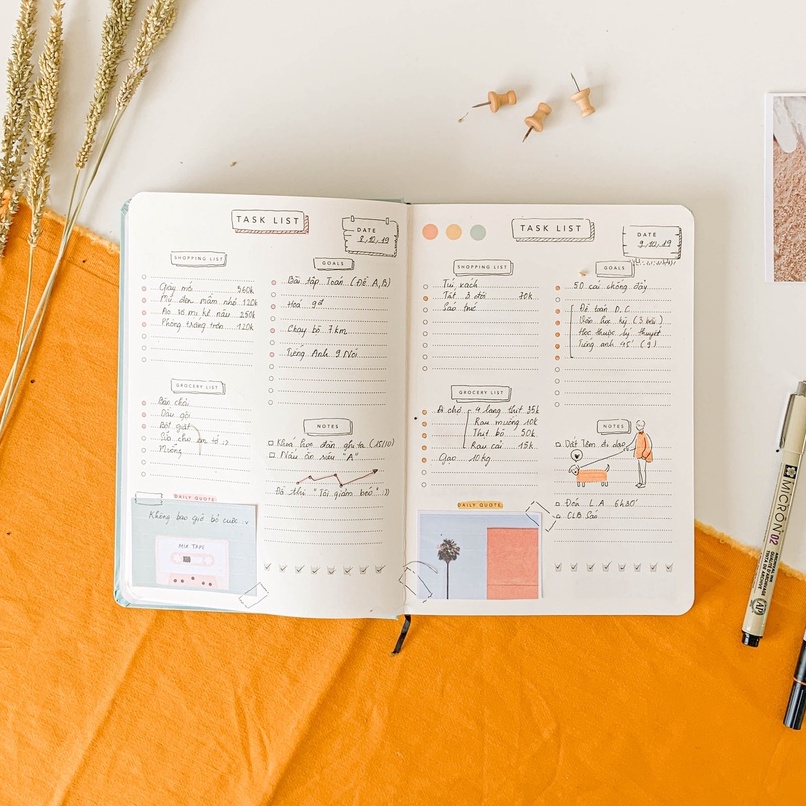 TASK LIST
DATE
8.10.19
SHOPPING LIST
Giày mới 360k
Mũ đen mềm nhỏ 120k
Áo sơ mi kẻ nâu 250k
120k
GROCERY LIST
Bàn chải
Dầu gội
Bột giặt
Sữa cho em
DAILY QUOTE
Không bao giờ bỏ cuộc
MIX TAPE
GOALS
Bài tập Toán (Đề A,B)
Hoá
Chạy bộ 7km
Tiếng Anh 9 Nói
NOTES
đàn ghita (15/10)
Nấu ăn siêu "A"
Đồ thị "Tôi giảm béo" :))
TASK LIST
DATE
9.10.19
SHOPPING LIST
Túi xách
Tất 3 đôi 70k
Sáo trúc
GROCERY LIST
Đi chợ 4 lạng thịt 35k
Rau muống 10k
Thịt bò 50k
Rau cải 15k
Gạo 10kg
DAILY QUOTE
GOALS
50 cái chống đẩy
Đề toán D.C
Văn học kỳ (3 bài)
Học thuộc lý thuyết
Tiếng anh 45' (9)
NOTES
Dắt Tôm đi dạo
Đón L.A 6h30'
CLB Sáo
MICRON 02
ARCHIVAL INK